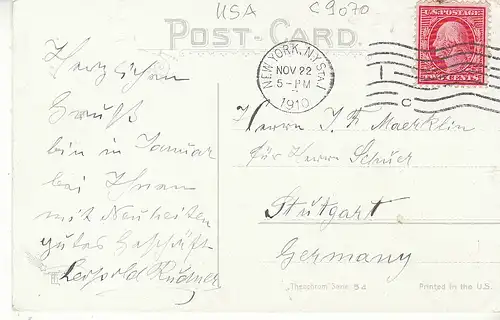 USA C9070
POST-CARD.
U.S. POSTAGE
NEW YORK, N.Y. STA. I
NOV 22
5-PM
1910
C
Herzlichen
Gruß
bin in Januar
bei Ihnen
mit Neuheiten
gutes Geschäft
Leopold
Herrn J. F. Maerklin
für Herrn
Stuttgart
Germany
"Theochrom" Serie 94
Printed by the U.S.